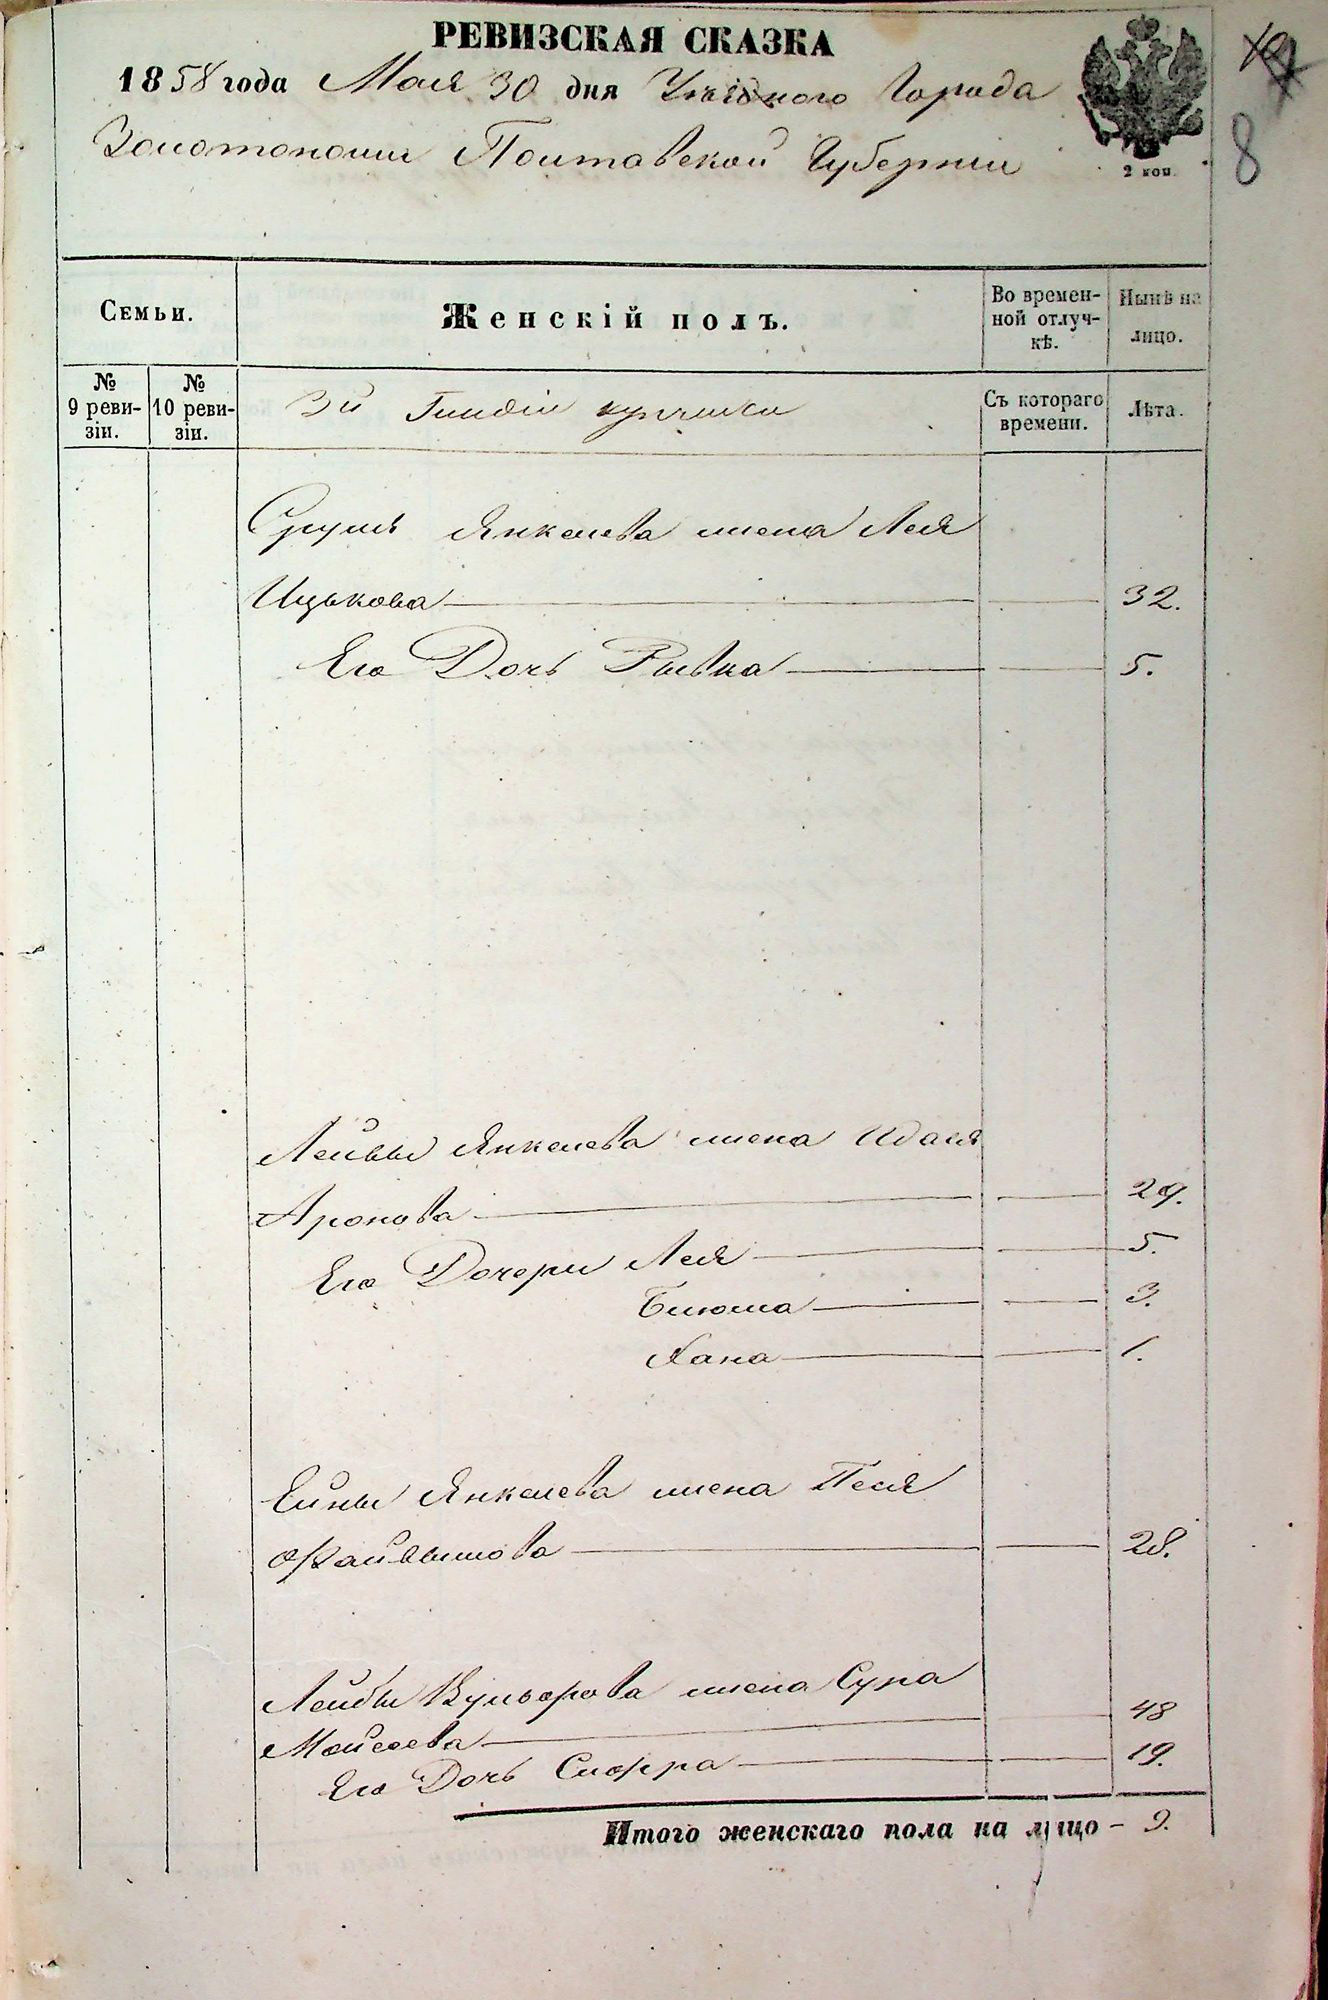 РЕВИЗСКАЯ СКАЗКА
1858 года Мая 30 дня Уѣзднаго Города
Золотоноши Полтавской Губерніи
2 коп.
8
Семьи.
Женскій полъ.
Во времен-
ной отлуч-
кѣ.
Нынѣ на
лицо.
№
9 реви-
зіи.
№
10 реви-
зіи.
3й Гильдіи купчихи
Съ котораго
времени.
Лѣта.
Сруль Янкелева жена Лея
Ицькова 32.
Его Дочь Рывка 5.
Лейвы Янкелева жена Идася
Аронова 29.
Его Дочери Лея 5.
Блюма 3.
Хана 1.
Янкелева жена Песя
Файвышова 28.
Лейбы Вульфова жена Сура
Мойсеева 48
Его Дочь Сифра 19.
Итого женскаго пола на лицо - 9.